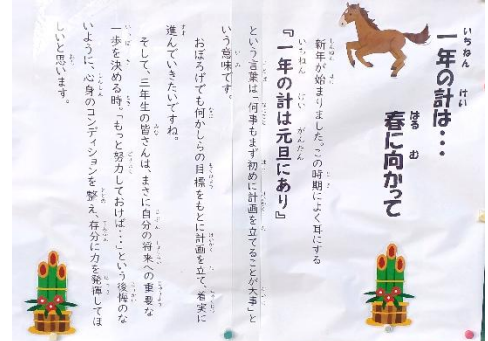 一年の計は・・・
春に向かって
新年が始まりました。この時期によく耳にする
『一年の計は元旦にあり』
という言葉は「何事もまず初めに計画を立てることが大事」と
いう意味です。
おぼろげでも何かしらの目標をもとに計画を立て、着実に
進んでいきたいですね。
そして、三年生の皆さんは、まさに自分の将来への重要な
一歩を決める時。「もっと努力しておけば・・・」という後悔のな
いように、心身のコンディションを整え、存分に力を発揮してほ
しいと思います。